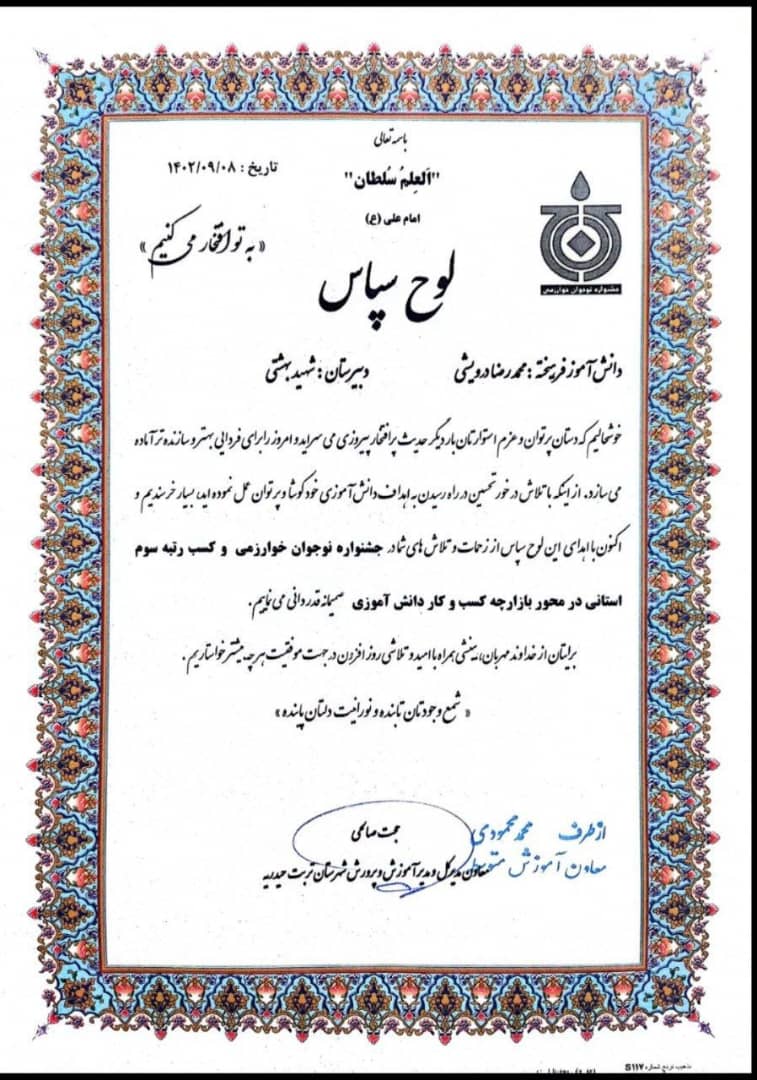 باسمه تعالی
تاریخ : ۱۴۰۲/۰۹/۰۸
"اَلعِلمُ سُلطان"
امام علی (ع)
« به تو افتخار می کنیم »
جشنواره نوجوان خوارزمی
لوح سپاس
دانش آموز فرهیخته : محمدرضا درویشی دبیرستان : شهید بهشتی
خوشحالیم که دستان پرتوان و عزم استوارتان بار دیگر حدیث پر افتخار پیروزی می سراید و امروز را برای فردایی بهتر و سازنده تر آماده
می سازد. از اینکه با تلاش در خور تحسین در راه رسیدن به اهداف دانش آموزی خود کوشا و پر توان عمل نموده اید، بسیار خرسندیم و
اکنون با اهدای این لوح سپاس از زحمات و تلاش های شما در جشنواره نوجوان خوارزمی و کسب رتبه سوم
استانی در محور بازارچه کسب و کار دانش آموزی صمیمانه قدردانی می نماییم.
برایتان از خداوند مهربان، بینشی همراه با امید و تلاشی روز افزون در جهت موفقیت هر چه بیشتر خواستاریم.
« شمع وجودتان تابنده و نورانیت دلتان پاینده »
از طرف محمد محمودی
معاون آموزش متوسطه
حجت صالحی
معاون مدیرکل و مدیر آموزش و پرورش شهرستان تربت حیدریه
تذهیب ترنج شماره S۱۱۷